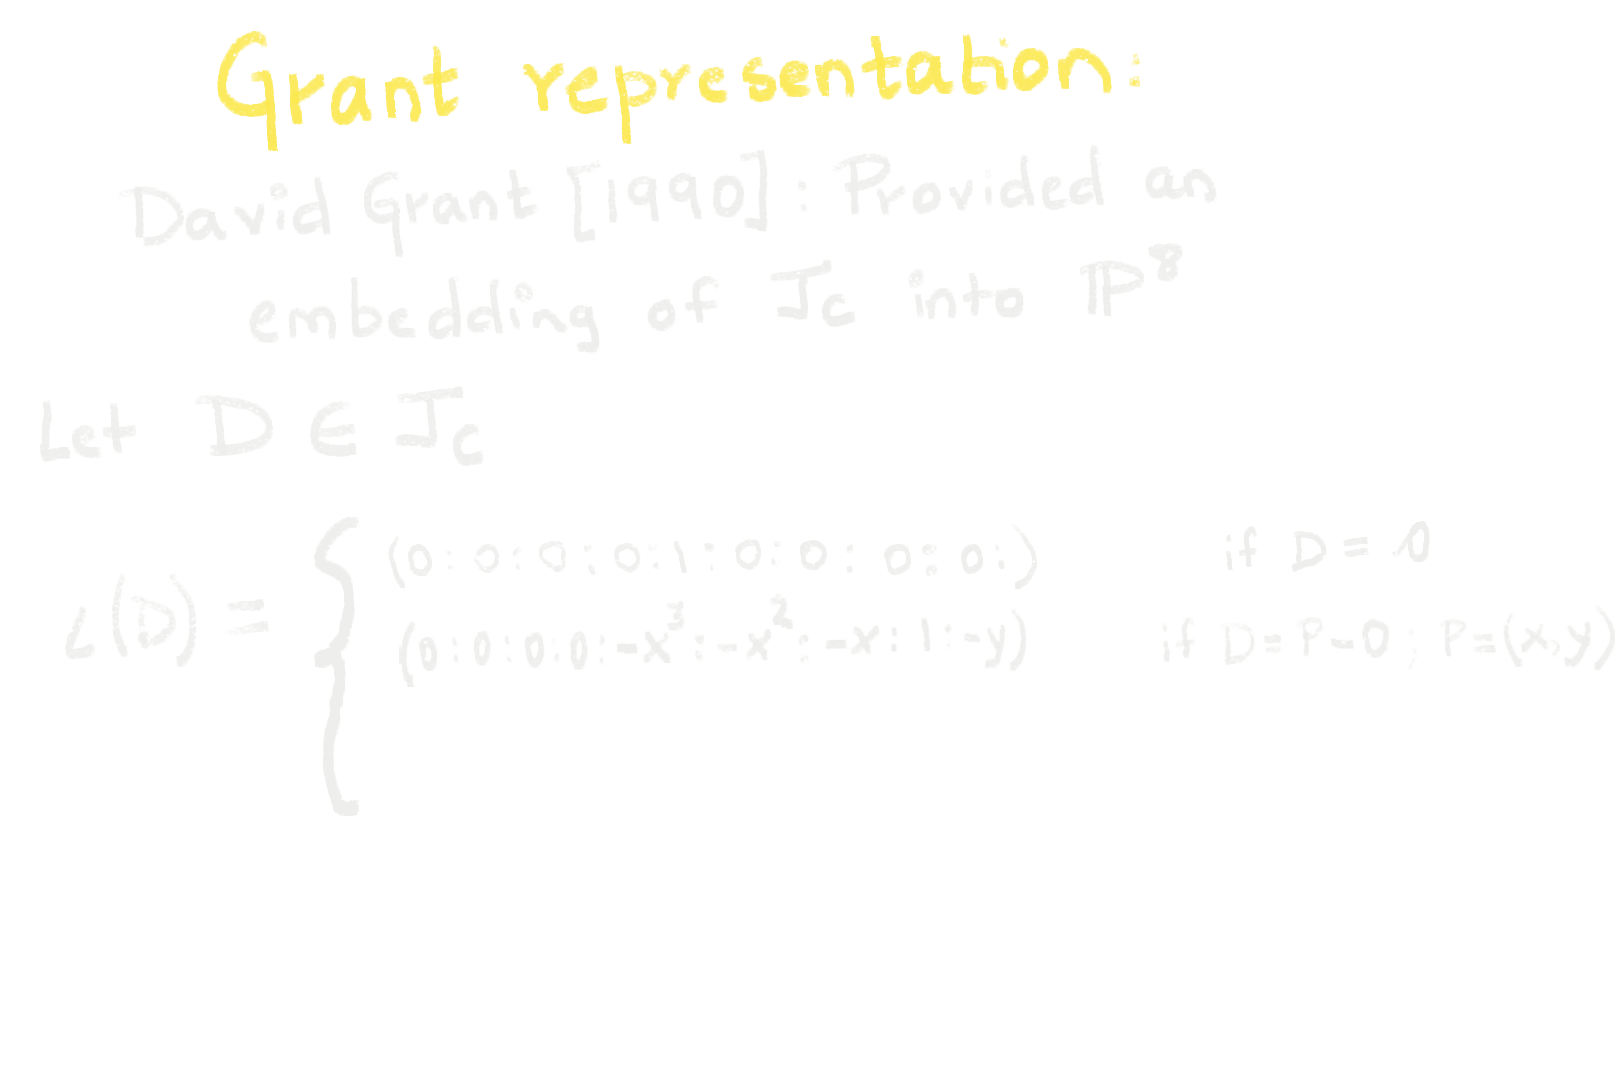 Grant representation:
David Grant [1990] : Provided an
embedding of J_C into ℙ^8
Let D ∈ J_C
L(D) = {
(0:0:0:0:1:0:0:0:0:) if D = 0
(0:0:0:0:-x^3:-x^2:-x:1:-y) if D=P-0; P=(x,y)